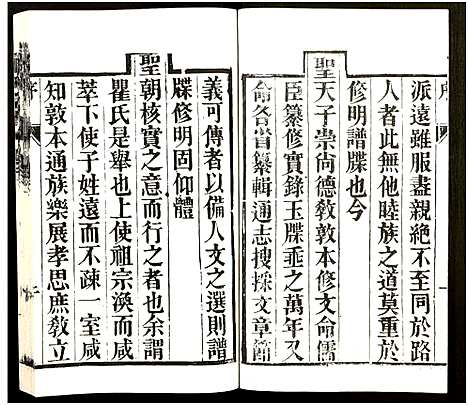 序
派遠雖服盡親絶不至同於路
人者此無他睦族之道莫重於
修明譜牒也今
聖
天子崇尚德敎敦本修文命儒
臣纂修實錄玉牒垂之萬年又
命各省纂輯通志搜採文章節
義可傳者以備人文之選則譜
牒修明固仰體
聖
朝核實之意而行之者也余謂
瞿氏是舉也上使祖宗渙而咸
萃下使子姓遠而不疎一室咸
知敦本通族樂展孝思庶敎立
序
二